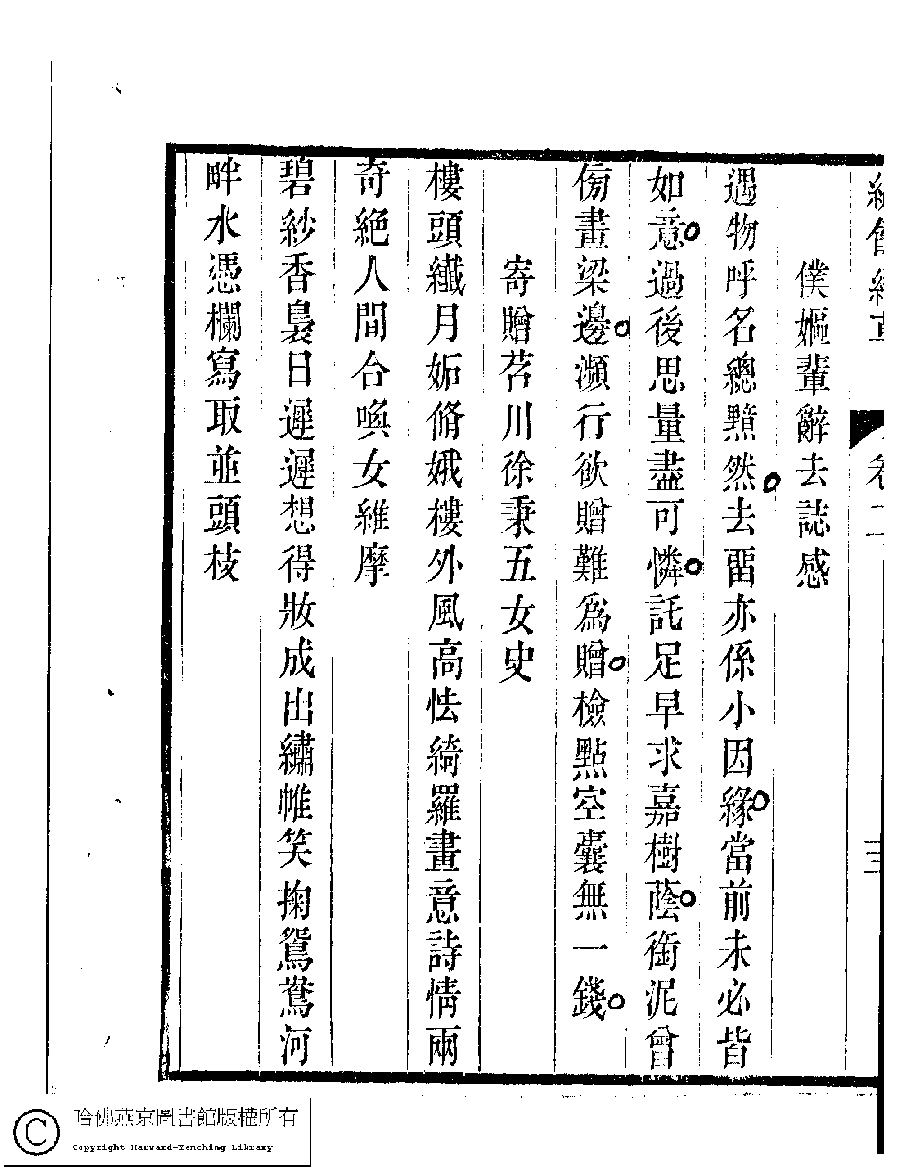 卷二
三
僕嫗輩辭去誌感
遇物呼名總黯然去畱亦係小因緣當前未必皆
如意過後思量盡可憐託足早求嘉樹蔭銜泥曾
傍畫梁邊瀕行欲贈難爲贈檢點空囊無一錢
寄贈苕川徐秉五女史
樓頭纖月妬脩娥樓外風高怯綺羅畫意詩情兩
奇絕人間合喚女維摩
碧紗香裊日遲遲想得妝成出繡帷笑掬鴛鴦河
畔水憑欄寫取並頭枝
哈佛燕京圖書館版權所有
Copyright Harvard-Yenching Library